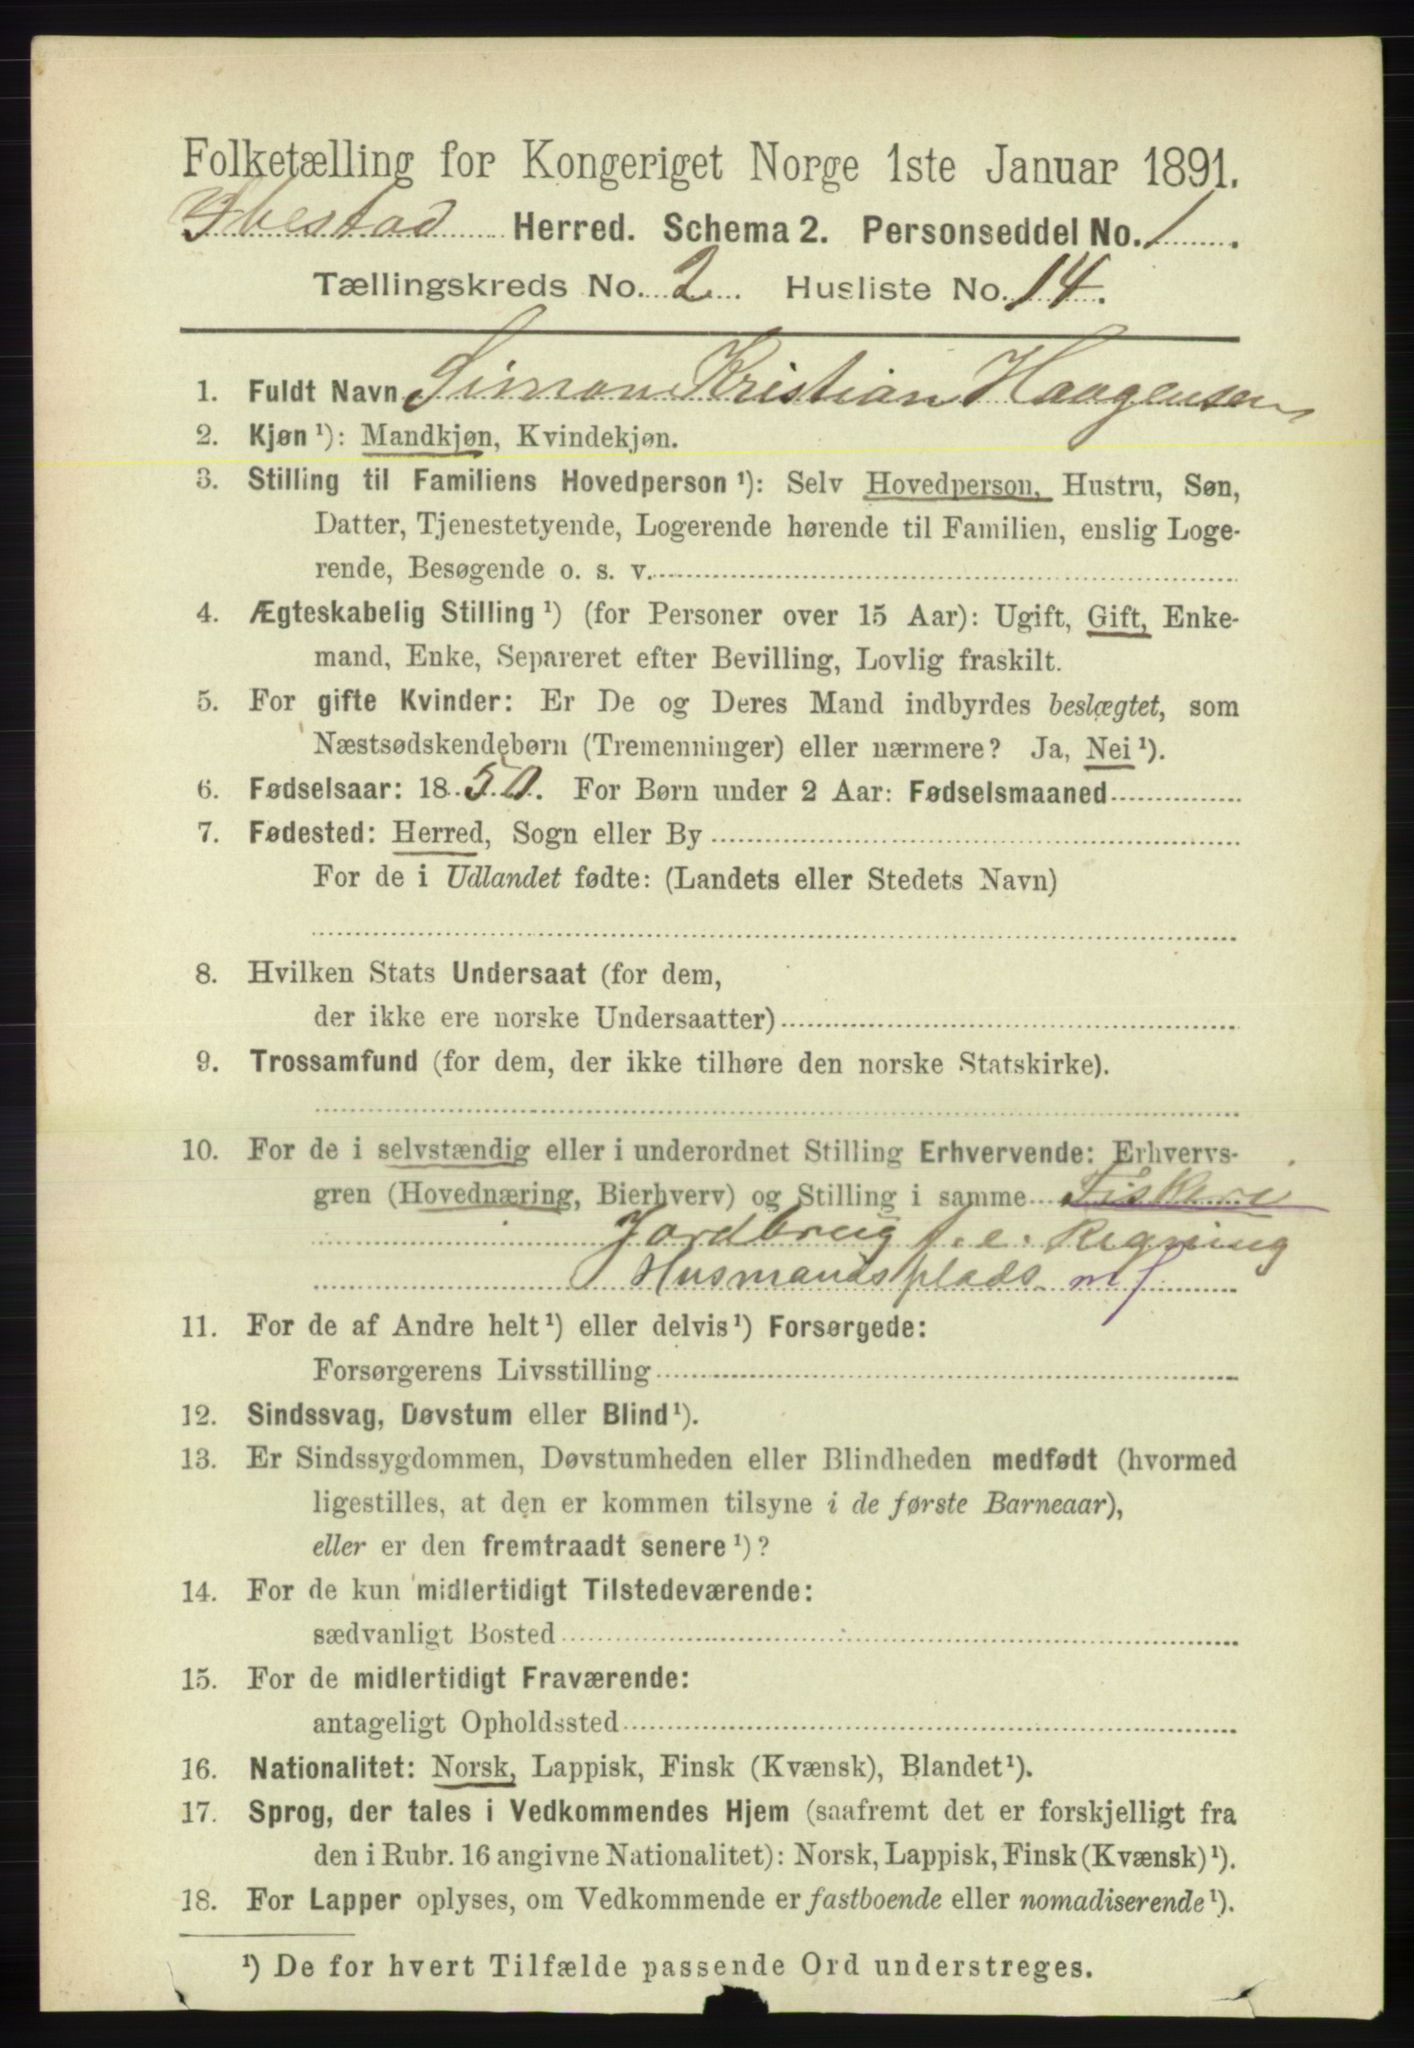 Folketælling for Kongeriget Norge 1ste Januar 1891.
Ibestad Herred. Schema 2. Personseddel No. 1.
Tællingskreds No. 2. Husliste No. 14.
1. Fuldt Navn Simon Kristian Haagensen
2. Kjøn¹): Mandkjøn, Kvindekjøn.
3. Stilling til Familiens Hovedperson¹): Selv Hovedperson, Hustru, Søn,
Datter, Tjenestetyende, Logerende hørende til Familien, enslig Loge-
rende, Besøgende o. s. v.
4. Ægteskabelig Stilling¹) (for Personer over 15 Aar): Ugift, Gift, Enke-
mand, Enke, Separeret efter Bevilling, Lovlig fraskilt.
5. For gifte Kvinder: Er De og Deres Mand indbyrdes beslægtet, som
Næstsødskendebørn (Tremenninger) eller nærmere? Ja, Nei¹).
6. Fødselsaar: 1850. For Børn under 2 Aar: Fødselsmaaned
7. Fødested: Herred, Sogn eller By
For de i Udlandet fødte: (Landets eller Stedets Navn)
8. Hvilken Stats Undersaat (for dem,
der ikke ere norske Undersaatter)
9. Trossamfund (for dem, der ikke tilhøre den norske Statskirke).
10. For de i selvstændig eller i underordnet Stilling Erhvervende: Erhvervs-
gren (Hovednæring, Bierhverv) og Stilling i samme Fiskeri
Jordbrug f. e. Regning
Husmandsplads m j
11. For de af Andre helt¹) eller delvis¹) Forsørgede:
Forsørgerens Livsstilling
12. Sindssvag, Døvstum eller Blind¹).
13. Er Sindssygdommen, Døvstumheden eller Blindheden medfødt (hvormed
ligestilles, at den er kommen tilsyne i de første Barneaar),
eller er den fremtraadt senere¹)?
14. For de kun midlertidigt Tilstedeværende:
sædvanligt Bosted
15. For de midlertidigt Fraværende:
antageligt Opholdssted
16. Nationalitet: Norsk, Lappisk, Finsk (Kvænsk), Blandet¹).
17. Sprog, der tales i Vedkommendes Hjem (saafremt det er forskjelligt fra
den i Rubr. 16 angivne Nationalitet): Norsk, Lappisk, Finsk (Kvænsk)¹).
18. For Lapper oplyses, om Vedkommende er fastboende eller nomadiserende¹).
¹) De for hvert Tilfælde passende Ord understreges.